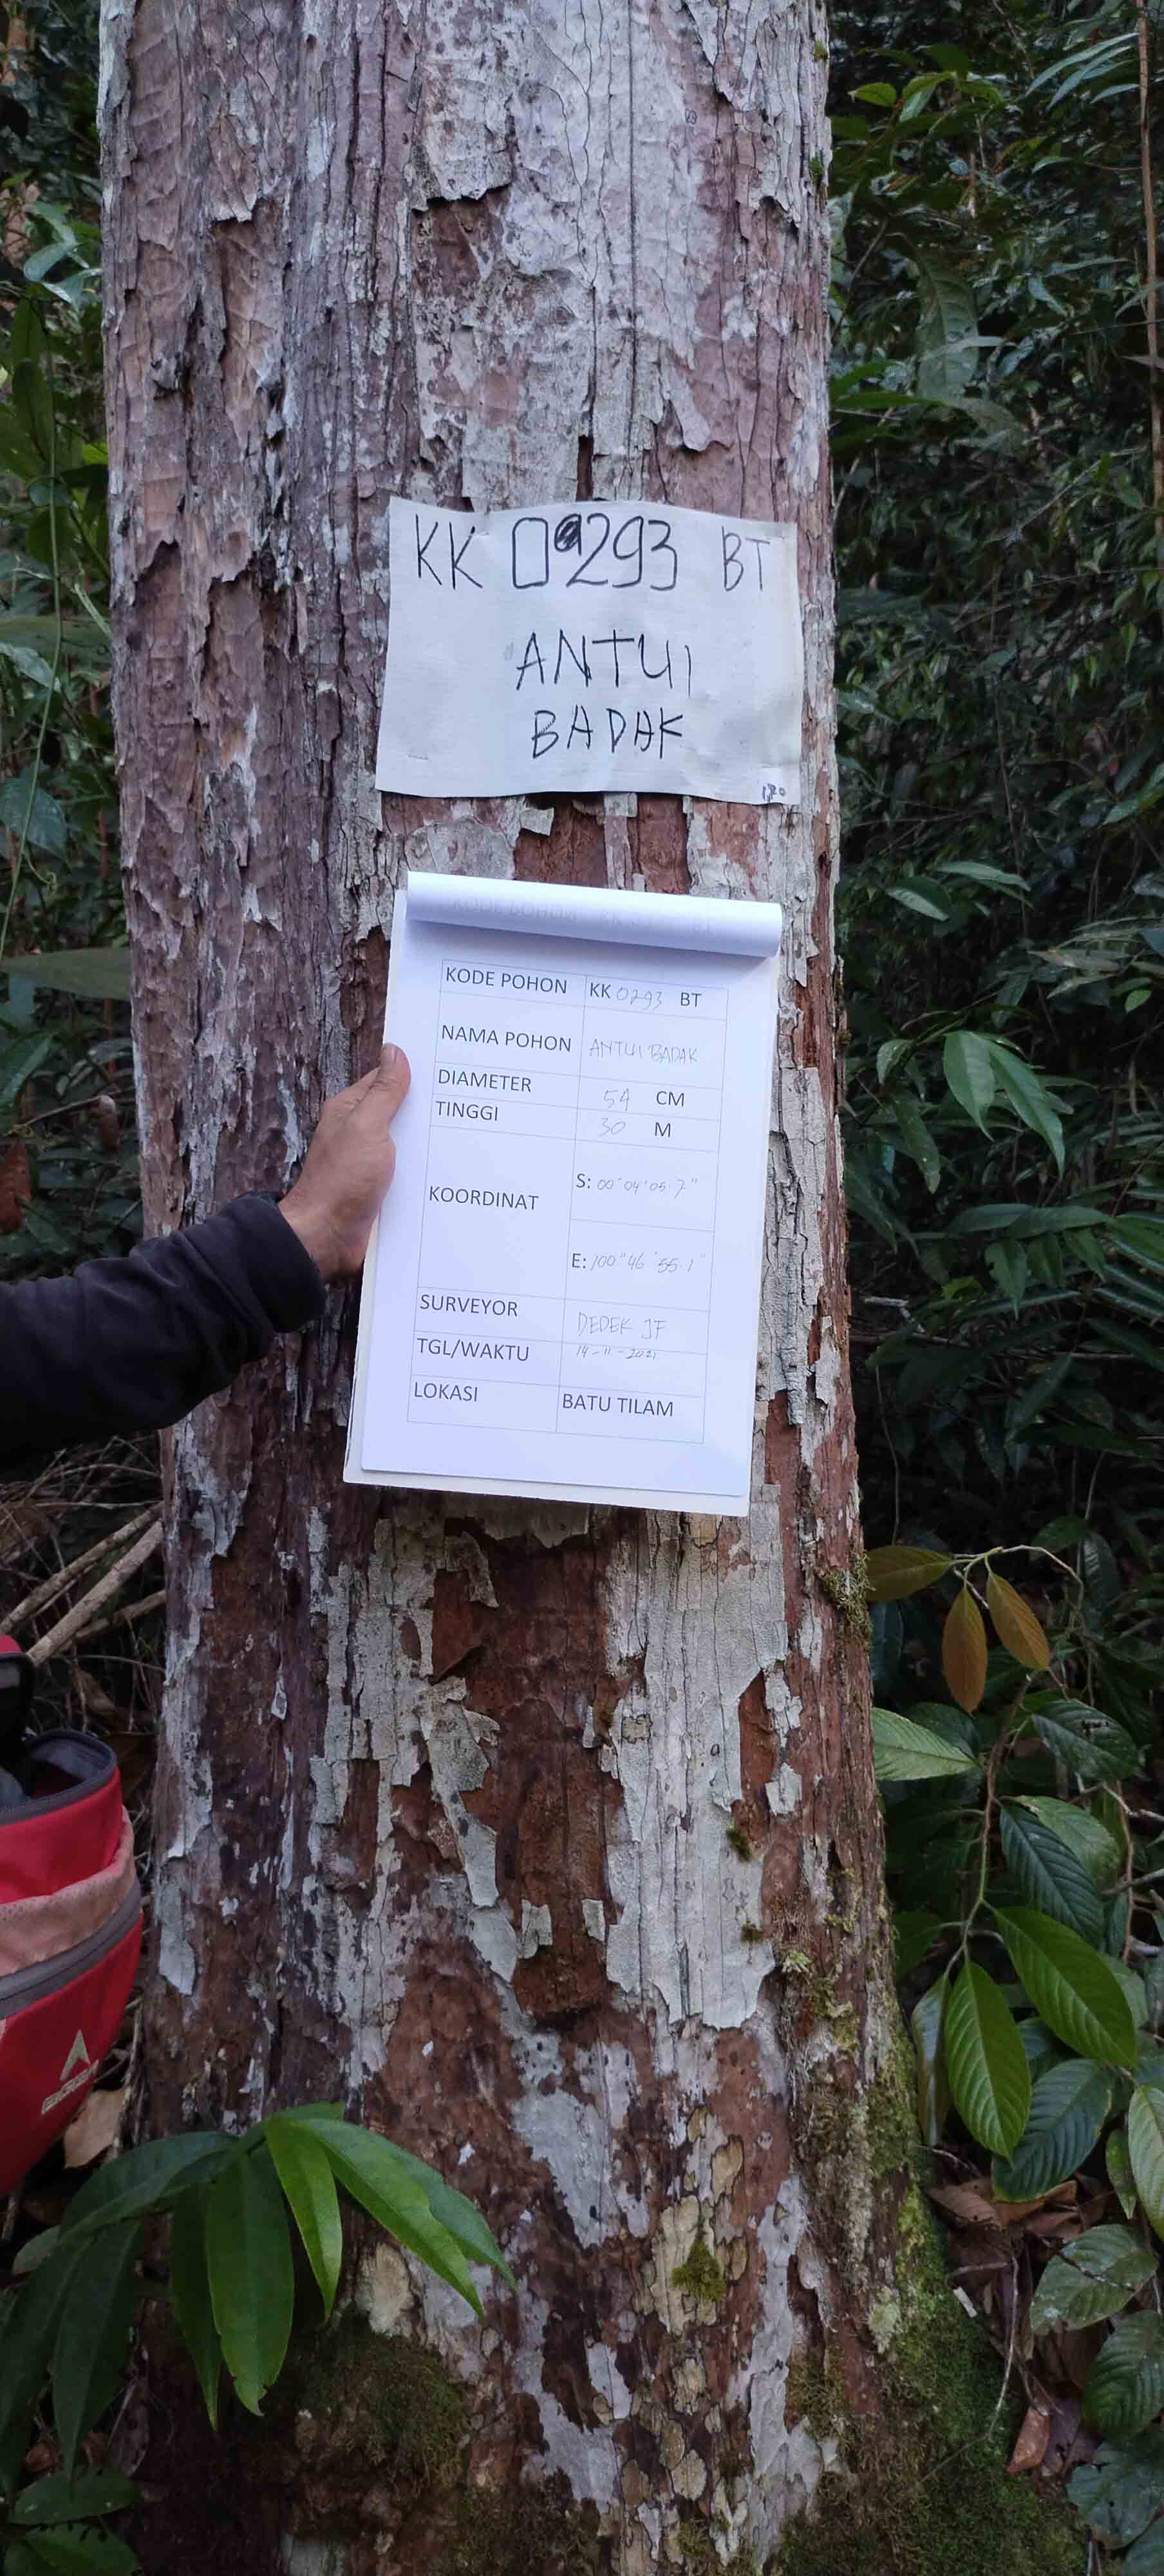 KK 0293 BT
ANTUI
BADAK
KODE POHON KK 0293 BT
NAMA POHON ANTUI BADAK
DIAMETER 54 CM
TINGGI 30 M
KOORDINAT
S: 00°04'05.7"
E: 100°46'55.1"
SURVEYOR DEDEK JF
TGL/WAKTU 14-11-2021
LOKASI BATU TILAM